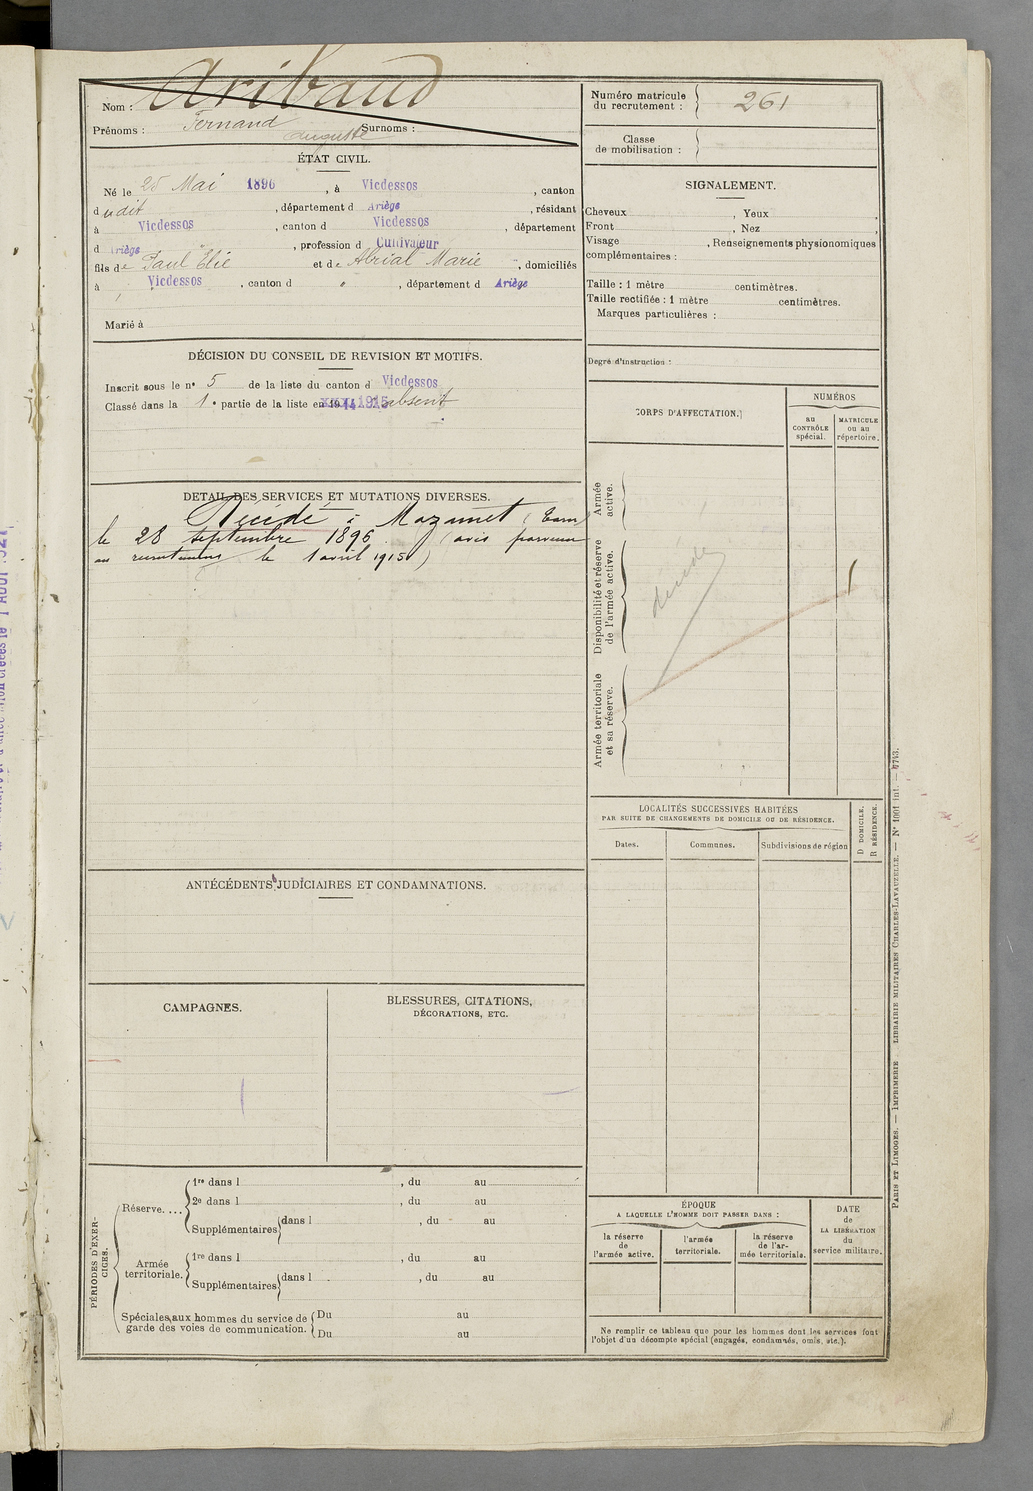 Nom : Aribaud
Prénoms : Fernand Auguste Surnoms :
ÉTAT CIVIL.
Né le 25 Mai 1896, à Vicdessos, canton
dudit, département d Ariège, résidant
à Vicdessos, canton d Vicdessos, département
d Ariège, profession d Cultivateur
fils de Paul Élie et de Abrial Marie, domiciliés
à Vicdessos, canton d " , département d Ariège
Marié à
DÉCISION DU CONSEIL DE REVISION ET MOTIFS.
Inscrit sous le n° 5 de la liste du canton d Vicdessos
Classé dans la 1e partie de la liste en 1915 absent
DETAIL DES SERVICES ET MUTATIONS DIVERSES.
Décédé à Mazamet (Tarn
le 28 septembre 1896. (avis parvenu
au recrutement le 1 avril 1915)
ANTÉCÉDENTS JUDICIAIRES ET CONDAMNATIONS.
CAMPAGNES.
BLESSURES, CITATIONS,
DÉCORATIONS, ETC.
PÉRIODES D'EXER-
CICES.
Réserve....
1re dans l , du au
2e dans l , du au
Supplémentaires dans l , du au
Armée
territoriale.
1re dans l , du au
Supplémentaires dans l , du au
Spéciales aux hommes du service de
garde des voies de communication.
Du au
Du au
Numéro matricule
du recrutement : 261
Classe
de mobilisation :
SIGNALEMENT.
Cheveux , Yeux ,
Front , Nez ,
Visage , Renseignements physionomiques
complémentaires :
Taille : 1 mètre centimètres.
Taille rectifiée : 1 mètre centimètres.
Marques particulières :
Degré d'instruction :
CORPS D'AFFECTATION.
NUMÉROS
au
CONTRÔLE
spécial.
MATRICULE
ou au
répertoire.
Armée
active.
Disponibilité et réserve
de l'armée active.
décédé
Armée territoriale
et sa réserve.
LOCALITÉS SUCCESSIVES HABITÉES
PAR SUITE DE CHANGEMENTS DE DOMICILE OU DE RÉSIDENCE.
Dates.
Communes.
Subdivisions de région
D DOMICILE.
R RÉSIDENCE.
ÉPOQUE
A LAQUELLE L'HOMME DOIT PASSER DANS :
la réserve
de
l'armée active.
l'armée
territoriale.
la réserve
de l'ar-
mée territoriale.
DATE
de
LA LIBÉRATION
du
service militaire.
Ne remplir ce tableau que pour les hommes dont les services font
l'objet d'un décompte spécial (engagés, condamnés, omis, etc.).
PARIS ET LIMOGES. — IMPRIMERIE LIBRAIRIE MILITAIRES CHARLES-LAVAUZELLE. — N° 1001 int. — 4743.